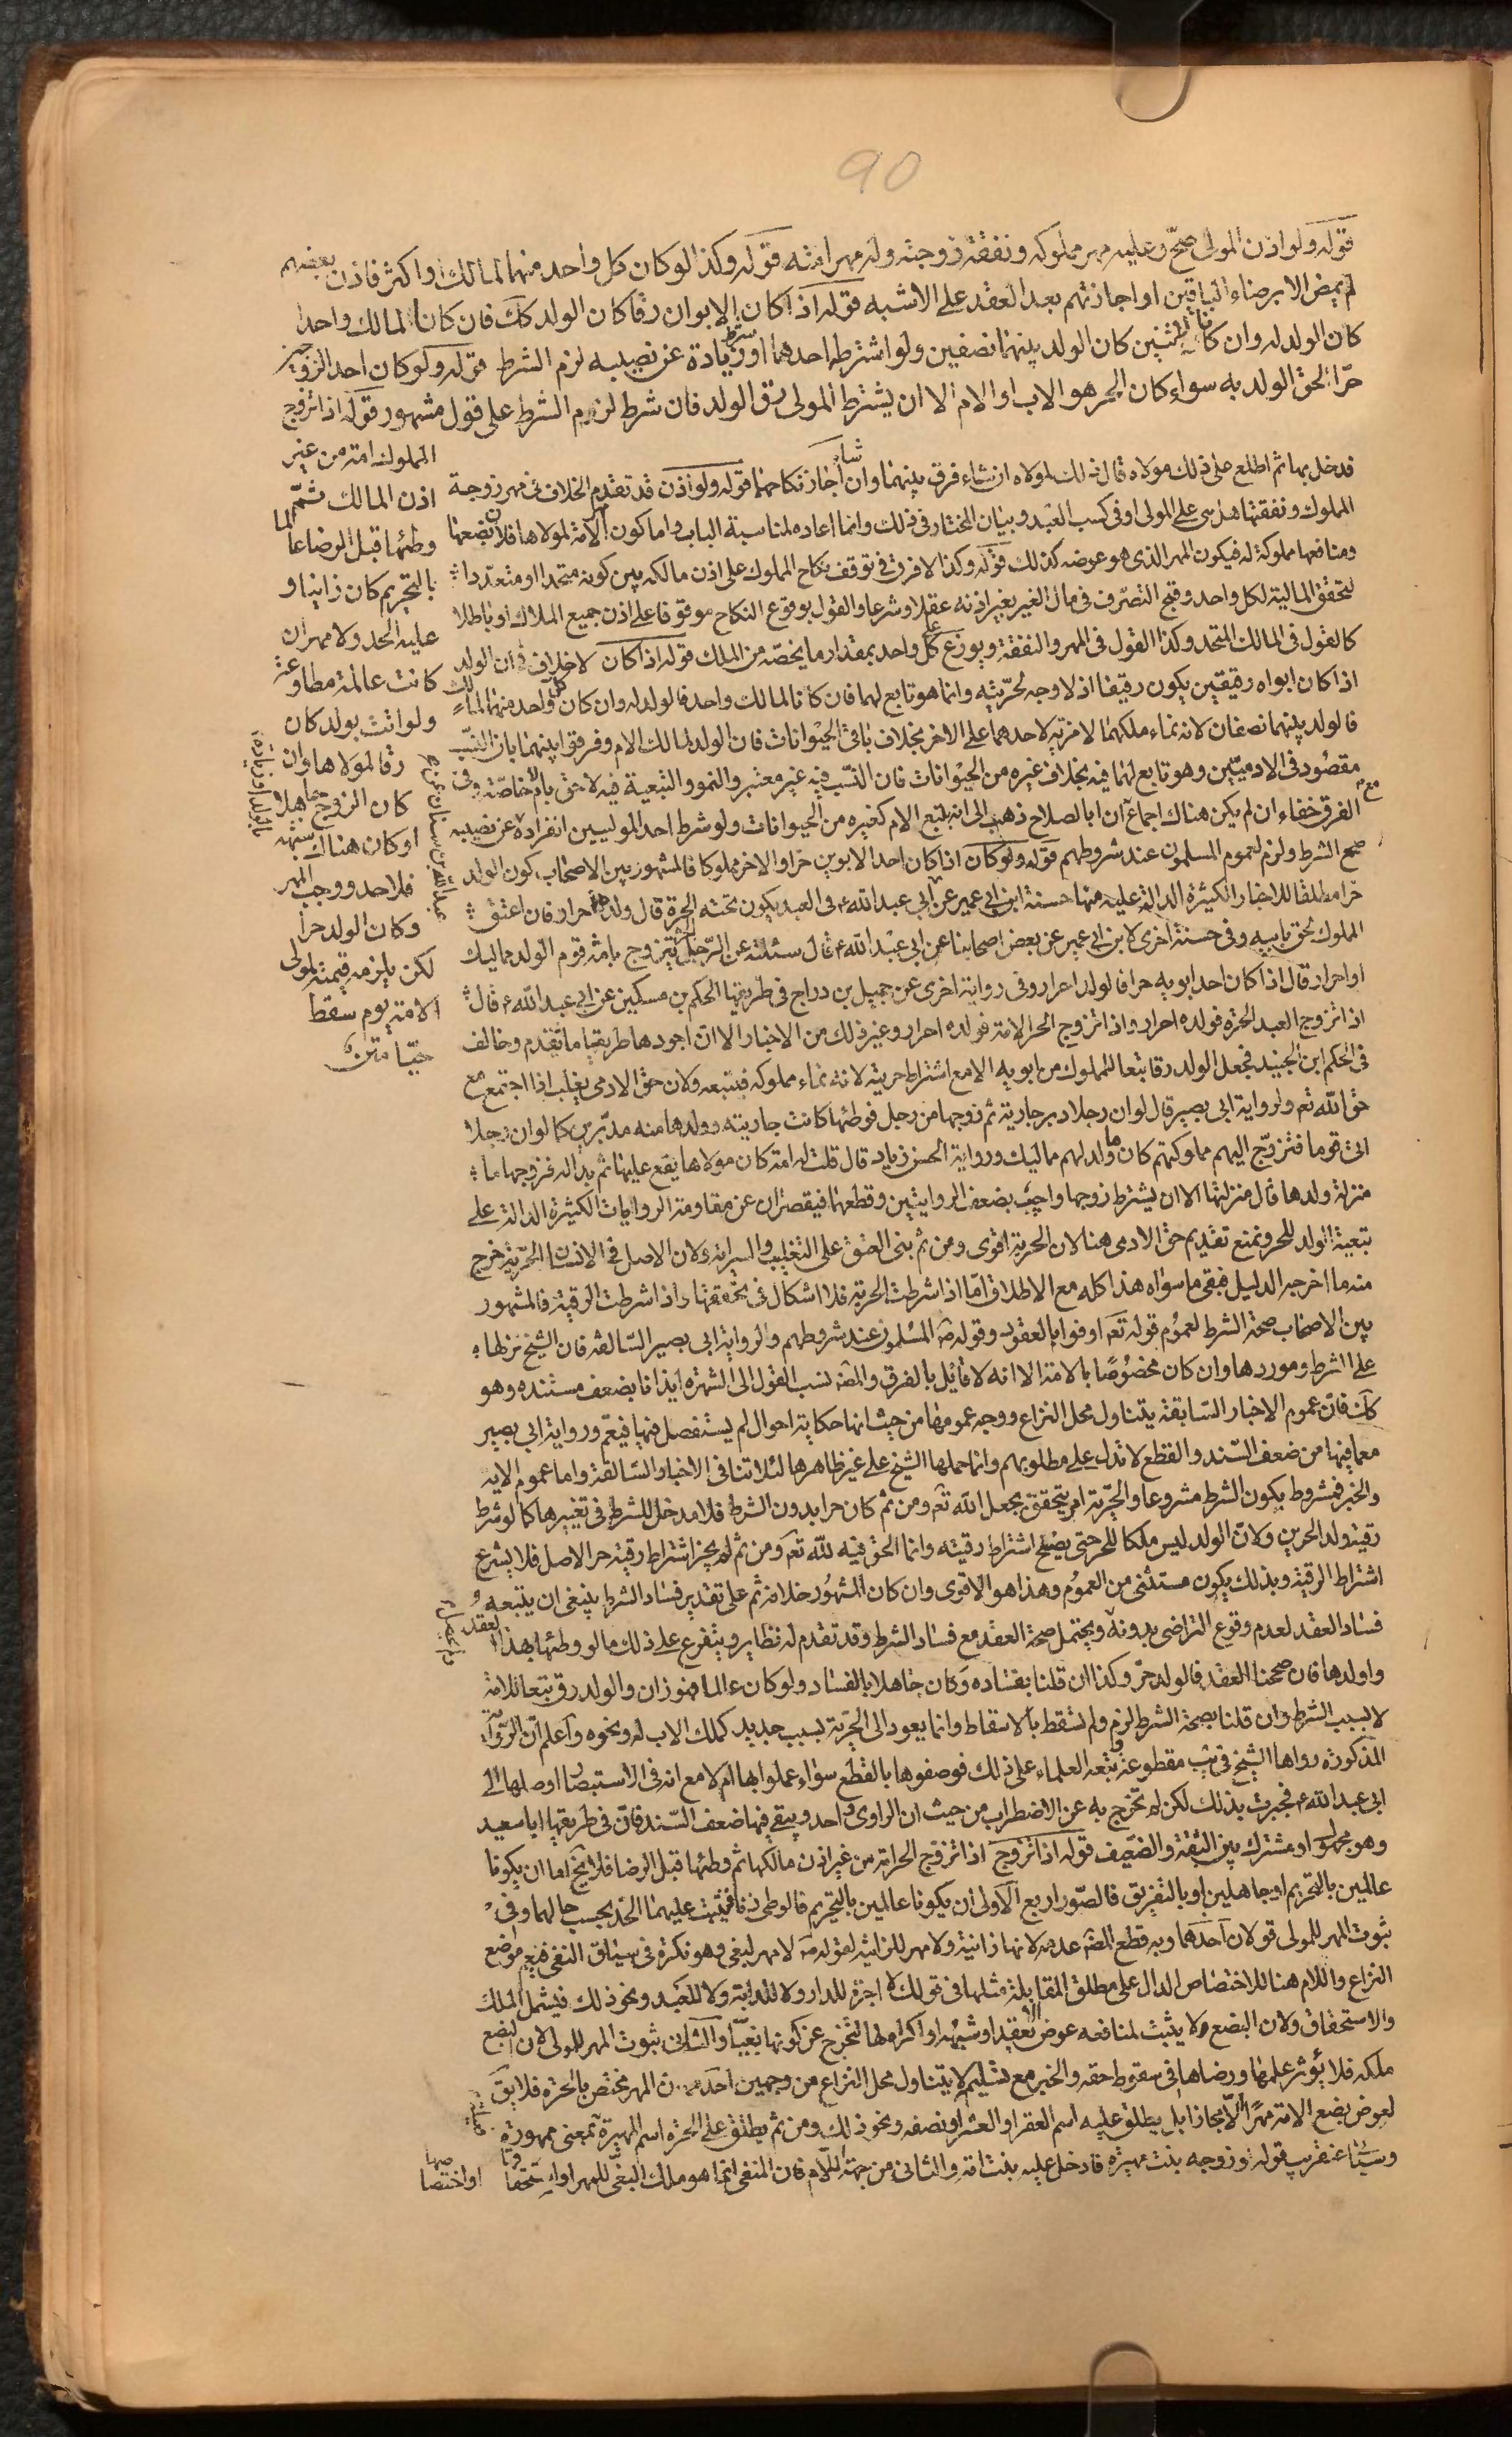 90
قوله ولو اذن المولى صحّ وعليه مهر مملوكه ونفقة زوجته وله مهر امته قوله وكذا لو كان كل واحد منهما لمالك او اكثر فاذن بعضهم
لم يمض الا برضاء الباقين او اجازتهم بعد العقد على الاشبه قوله اذا كان الابوان رقا كان الولد كك فان كانا لمالك واحد
كان الولد له وان كانا لاثنين كان الولد بينهما نصفين ولو اشترطه احدهما او شرط زيادة عن نصيبه لزم الشرط قوله ولو كان احد الزوجين
حرّا لحق الولد به سواء كان الحر هو الاب او الام الا ان يشترط المولى رق الولد فان شرط لزم الشرط على قول مشهور قوله اذا تزوج
المملوك امة من غير
اذن المالك ثمّ
وطئها قبل الرضا عالما
بالتحريم كان زانيا و
عليه الحد ولا مهر ان
كانت عالمة مطاوعة
ولو اتت بولد كان
رقا لمولاها وان
كان الزوج جاهلا
او كان هناك شبهة
فلا حد ووجب المهر
وكان الولد حرا
لكن يلزمه قيمته لمولى
الامة يوم سقط
حيّا متن
فدخل بها ثم اطلع على ذلك مولاه قال ذلك لمولاه ان شاء فرق بينهما وان شاء اجاز نكاحهما قوله ولو اذن قد تقدم الخلاف في مهر زوجة
المملوك ونفقتها هل هي على المولى او في كسب العبد وبيان المختار في ذلك وانما اعاده لمناسبة الباب واما كون مهر الامة لمولاها فلان بضعها
ومنافعها مملوكة له فيكون المهر الذي هو عوضه كذلك قوله وكذا لا فرق في توقف نكاح المملوك على اذن مالكه بين كونه متحدا او متعددا
لتحقق المالية لكل واحد وقبح التصرّف في مال الغير بغير اذنه عقلا وشرعا والقول بوقوع النكاح موقوفا على اذن جميع الملاك او باطلا
كالقول في المالك المتحد وكذا القول في المهر والنفقة ويوزع على كل واحد بمقدار ما يخصّه من الملك قوله اذا كان لا خلاف في ان الولد
اذا كان ابواه رقيقين يكون رقيقا اذ لا وجه لحريته وانما هو تابع لهما فان كانا لمالك واحد فالولد له وان كان كل واحد منهما لمالك
فالولد بينهما نصفان لانه نماء ملكهما لا مزية لاحدهما على الاخر بخلاف باقي الحيوانات فان الولد لمالك الام وفرقوا بينهما بان النسب
مقصود في الادميين وهو تابع لهما فيه بخلاف غيره من الحيوانات فان النسب فيه غير معتبر والنمو والتبعية فيه لاحق بالام خاصّة وفي
الفرق خفاء ان لم يكن هناك اجماع مع ان ابا الصلاح ذهب الى انه يتبع الام كغيره من الحيوانات ولو شرط احد الموليين انفراده عن نصيبه
صح الشرط ولزم لعموم المسلمون عند شروطهم قوله ولو كان اذا كان احد الابوين حرا والاخر مملوكا فالمشهور بين الاصحاب كون الولد
حرا مطلقا للاخبار الكثيرة الدالة عليه منها حسنة ابن ابي عمير عن ابي عبد الله ع في العبد يكون تحته الحرة قال ولده احرار فان اعتق
المملوك لحق بابيه وفي حسنة اخرى لابن ابي عمير عن بعض اصحابنا عن ابي عبد الله ع قال سئلته عن الرّجل الحر يتزوج بامة قوم الولد مماليك
او احرار قال اذا كان احد ابويه حرا فالولد احرار وفي رواية اخرى عن جميل بن دراج في طريقها الحكم بن مسكين عن ابي عبد الله ع قال
اذا تزوج العبد الحرة فولده احرار واذا تزوج الحر الامة فولده احرار وغير ذلك من الاخبار الا ان اجودها طريقا ما تقدم وخالف
في الحكم ابن الجنيد فجعل الولد رقا تبعا للمملوك من ابويه الا مع اشتراط حريته لانه نماء مملوكه فيتبعه ولان حق الادمي يغلب اذا اجتمع مع
حق الله تع ولرواية ابي بصير قال لو ان رجلا دبر جارية ثم زوجها من رجل فوطئها كانت جاريته وولدها منه مدبرين كما لو ان رجلا
اتى قوما فتزوج اليهم مملوكتهم كان ما ولد لهم مماليك ورواية الحسن زياد قال قلت له امة كان مولاها يقع عليها ثم بدا له فزوجها ما
منزلة ولدها قال منزلتها الا ان يشترط زوجها واجيب بضعف الروايتين وقطعهما فيقصران عن مقاومة الروايات الكثيرة الدالة على
تبعية الولد للحر ونمنع تقديم حق الادمي هنا لان الحرية اقوى ومن ثم بنى العتق على التغليب والسراية ولان الاصل في الانسان الحرّية خرج
منه ما اخرجه الدليل فبقي ما سواه هذا كله مع الاطلاق امّا اذا شرطت الحرية فلا اشكال في تحققها واذا شرطت الرقية فالمشهور
بين الاصحاب صحة الشرط لعموم قوله تع اوفوا بالعقود وقوله ص المسلمون عند شروطهم والرواية ابي بصير السّالفة فان الشيخ نزلها
على الشرط وموردها وان كان مخصوصا بالامة الا انه لا قائل بالفرق والمص نسب القول الى الشهرة ايذانا بضعف مستنده وهو
كك فان عموم الاخبار السّابقة يتناول محل النزاع ووجه عمومها من حيث انها حكاية احوال لم يستفصل فيها فيعم ورواية ابي بصير
مع ما فيها من ضعف السّند والقطع لا تدل على مطلوبهم وانما حملها الشيخ على غير ظاهرها لئلا تنافي الاخبار السّالفة واما عموم الاية
والخبر فمشروط بكون الشرط مشروعا والحرّية امر يتحقق بجعل الله تع ومن ثم كان حرا بدون الشرط فلا مدخل للشرط في تغييرها كما لو شرط
رقية ولد الحرين ولانّ الولد ليس ملكا للحر حتى يصلح اشتراط رقيته وانما الحق فيه لله تع ومن ثم لم يجز اشتراط رقية حر الاصل فلا يشرع
اشتراط الرقية وبذلك يكون مستثنى من العموم وهذا هو الاقوى وان كان المشهور خلافه ثم على تقدير فساد الشرط ينبغي ان يتبعه
فساد العقد لعدم وقوع التراضي بدونه ويحتمل صحة العقد مع فساد الشرط وقد تقدم له نظاير ويتفرع على ذلك ما لو وطئها بهذا العقد
واولدها فان صححنا العقد فالولد حرّ وكذا ان قلنا بفساده وكان جاهلا بالفساد ولو كان عالما فهو زان والولد رق تبعا للامة
لا بسبب الشرط وان قلنا بصحة الشرط لزم ولم تسقط بالاسقاط وانما يعود الى الحرّية بسبب جديد كملك الاب له ونحوه واعلم انّ الرّواية
المذكورة رواها الشيخ في يب مقطوعة وتبعه العلماء على ذلك فوصفوها بالقطع سواء عملوا بها ام لا مع انه في الاستبصار اوصلها الى
ابي عبد الله ع فجبرت بذلك لكن لم تخرج به عن الاضطراب من حيث ان الراوي واحد ويبقى فيها ضعف السّند فان في طريقها ابا سعيد
وهو مجهول او مشترك بين الثقة والضعيف قوله اذا تزوج اذا تزوج الحر امة من غير اذن مالكها ثم وطئها قبل الرضا فلا يخ اما ان يكونا
عالمين بالتحريم او جاهلين او بالتفريق فالصّور اربع الاولى ان يكونا عالمين بالتحريم فالوطي زنا فيثبت عليهما الحّد بحسب حالهما وفي
ثبوت المهر للمولى قولان احدهما وبه قطع المص عدمه لانها زانية ولا مهر للزانية لقوله ص لا مهر لبغي وهو نكرة في سياق النفي فيعم موضع
النزاع واللام هنا للاختصاص الدال على مطلق المقابلة مثلها في قولك لا اجرة للدار ولا للدابة ولا للعبد ونحو ذلك فيشمل الملك
والاستحقاق ولان البضع لا يثبت لمنافعه عوض الا بعقد او شبهه او اكراه لها لتخرج عن كونها بغيّا والثاني ثبوت المهر للمولى لان البضع
ملكه فلا يؤثر علمها ورضاها في سقوط حقه والخبر مع تسليمه لا يتناول محل النزاع من وجهين احدهما ان المهر مختص بالحرة فلا يق
لعوض بضع الامة مهرًا الّا مجازا بل يطلق عليه اسم العقر او العشر او نصفه ونحو ذلك ومن ثم يطلق على الحرة اسم المهيرة بمعنى ممهورة
وسيئاتي عنقريب قوله وزوجه بنت مهيرة فادخل عليه بنت امة والثاني من جهة اللّام فان المنفي انما هو ملك البغي للمهر او استحقاقها او اختصاصها